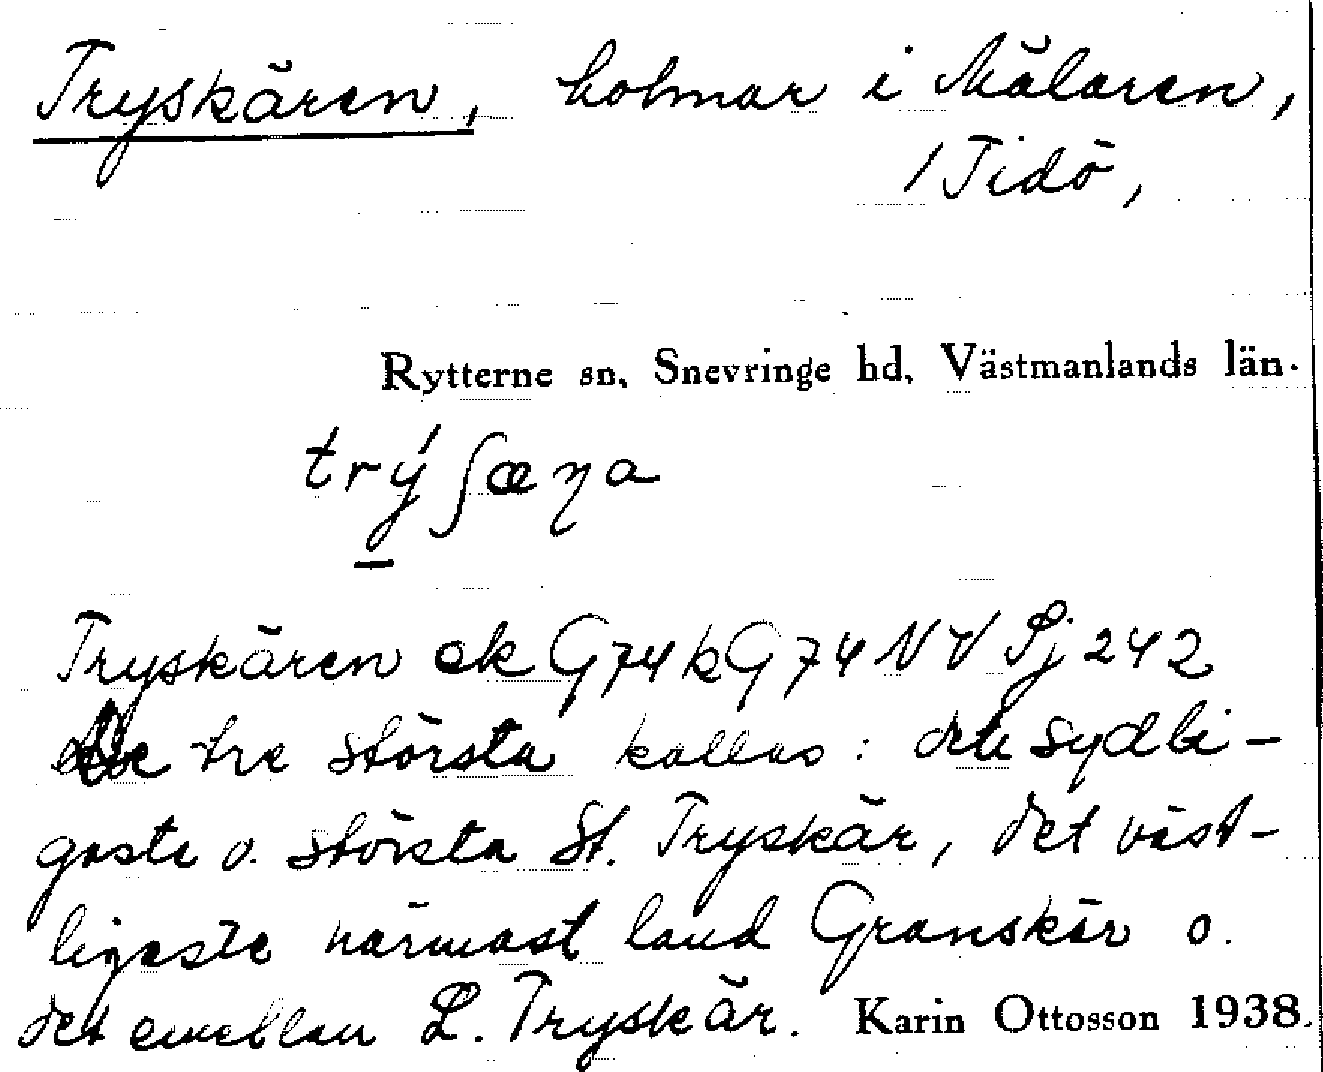 Tryskären, holmar i Mälaren,
/ Tidö,
Rytterne sn. Snevringe hd. Västmanlands län.
trý ʃæɳa
Tryskären ek G74 k G74 NV Sj 242
De tre största kallas: det sydli-
gaste o. största St. Tryskär, det väst-
ligaste närmast land Granskär o.
det emellan L. Tryskär. Karin Ottosson 1938.